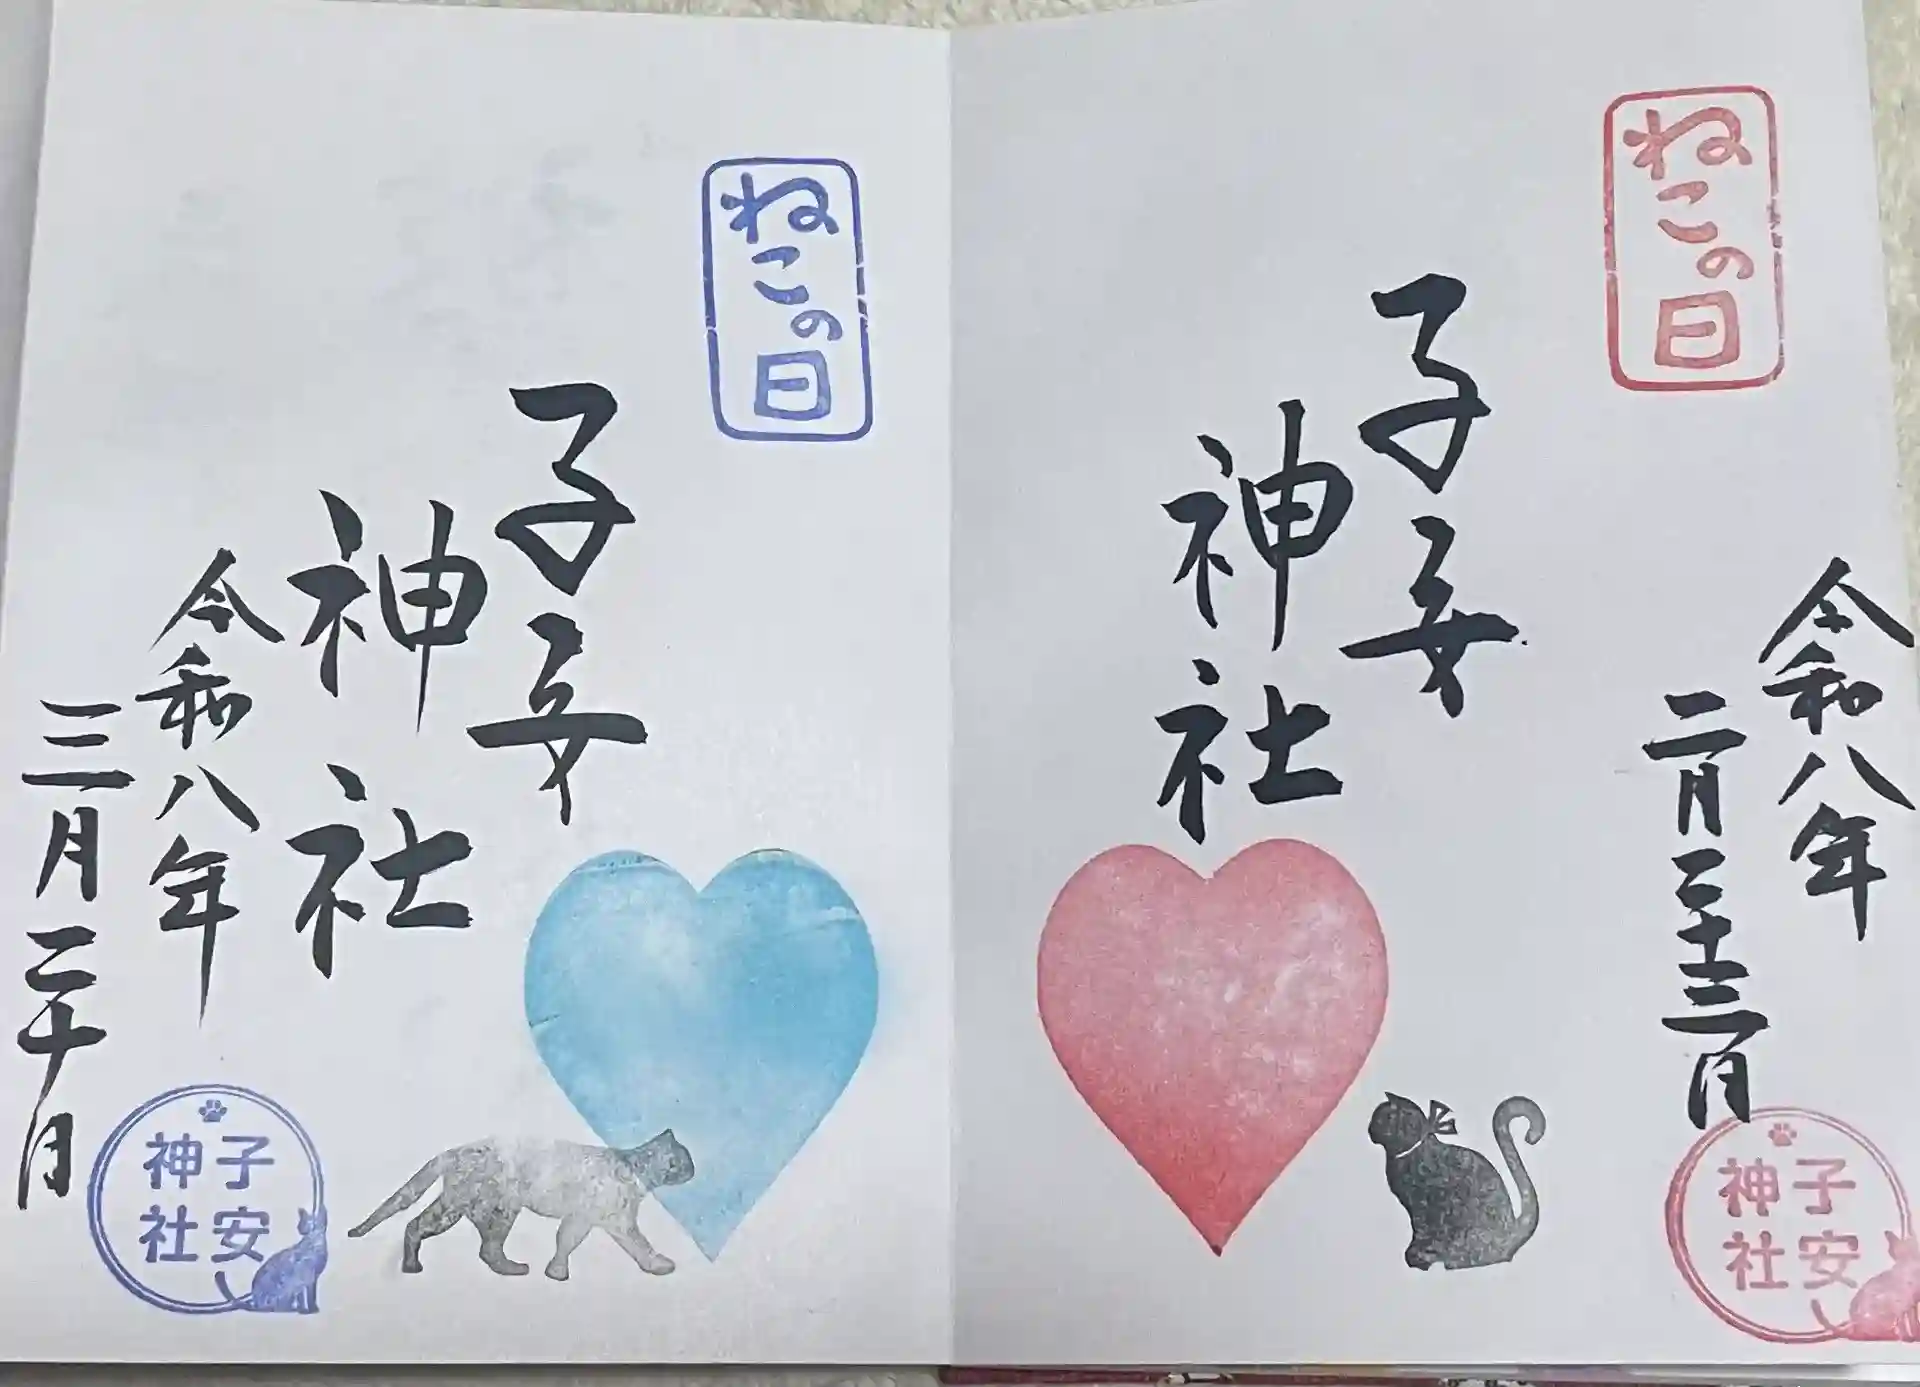 ねこの日
令和八年
二月二十二日
子安
神社
子安
神社
ねこの日
子安
神社
令和八年
三月二十日
子安
神社